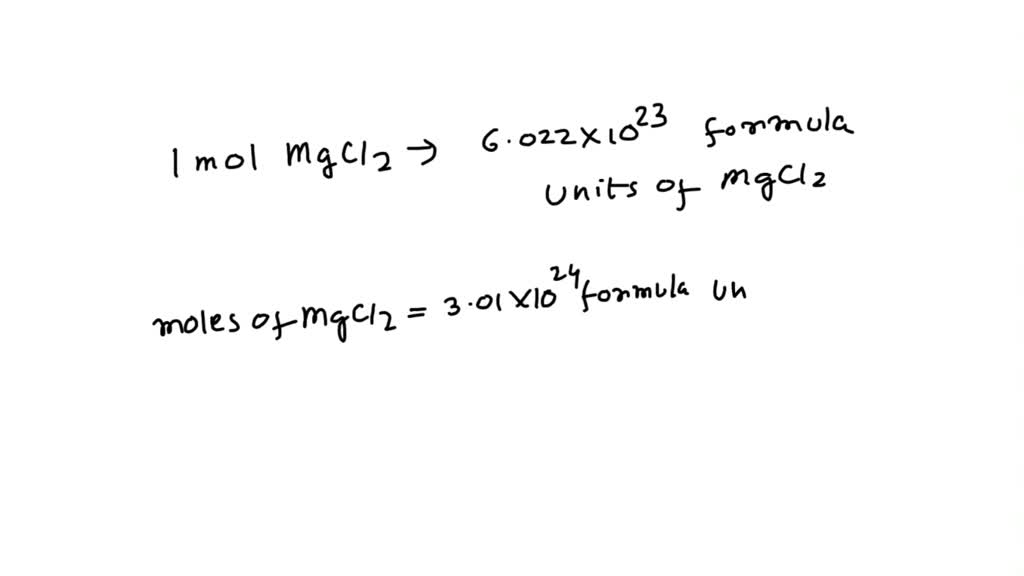 1 mol MgCl₂ → 6.022×10²³ formula
units of MgCl₂
moles of MgCl₂ = 3.01×10²⁴ formula un